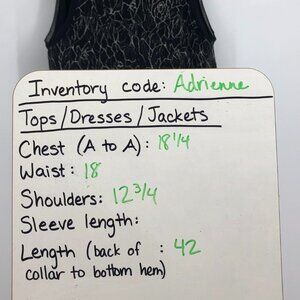 Inventory code: Adrienne
Tops/Dresses/Jackets
Chest (A to A): 18 1/4
Waist: 18
Shoulders: 12 3/4
Sleeve length:
Length (back of : 42
collar to bottom hem)